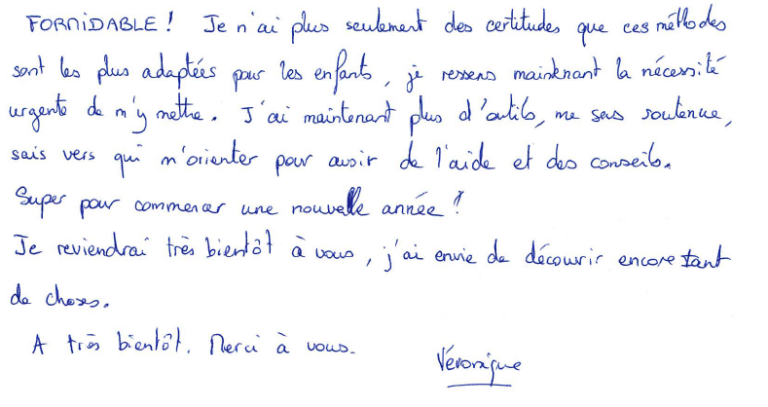 FORMIDABLE ! Je n'ai plus seulement des certitudes que ces méthodes
sont les plus adaptées pour les enfants, je ressens maintenant la nécessité
urgente de m'y mettre. J'ai maintenant plus d'outils, me sens soutenue,
sais vers qui m'orienter pour avoir de l'aide et des conseils.
Super pour commencer une nouvelle année !
Je reviendrai très bientôt à vous, j'ai envie de découvrir encore tant
de choses.
A très bientôt. Merci à vous.
Véronique